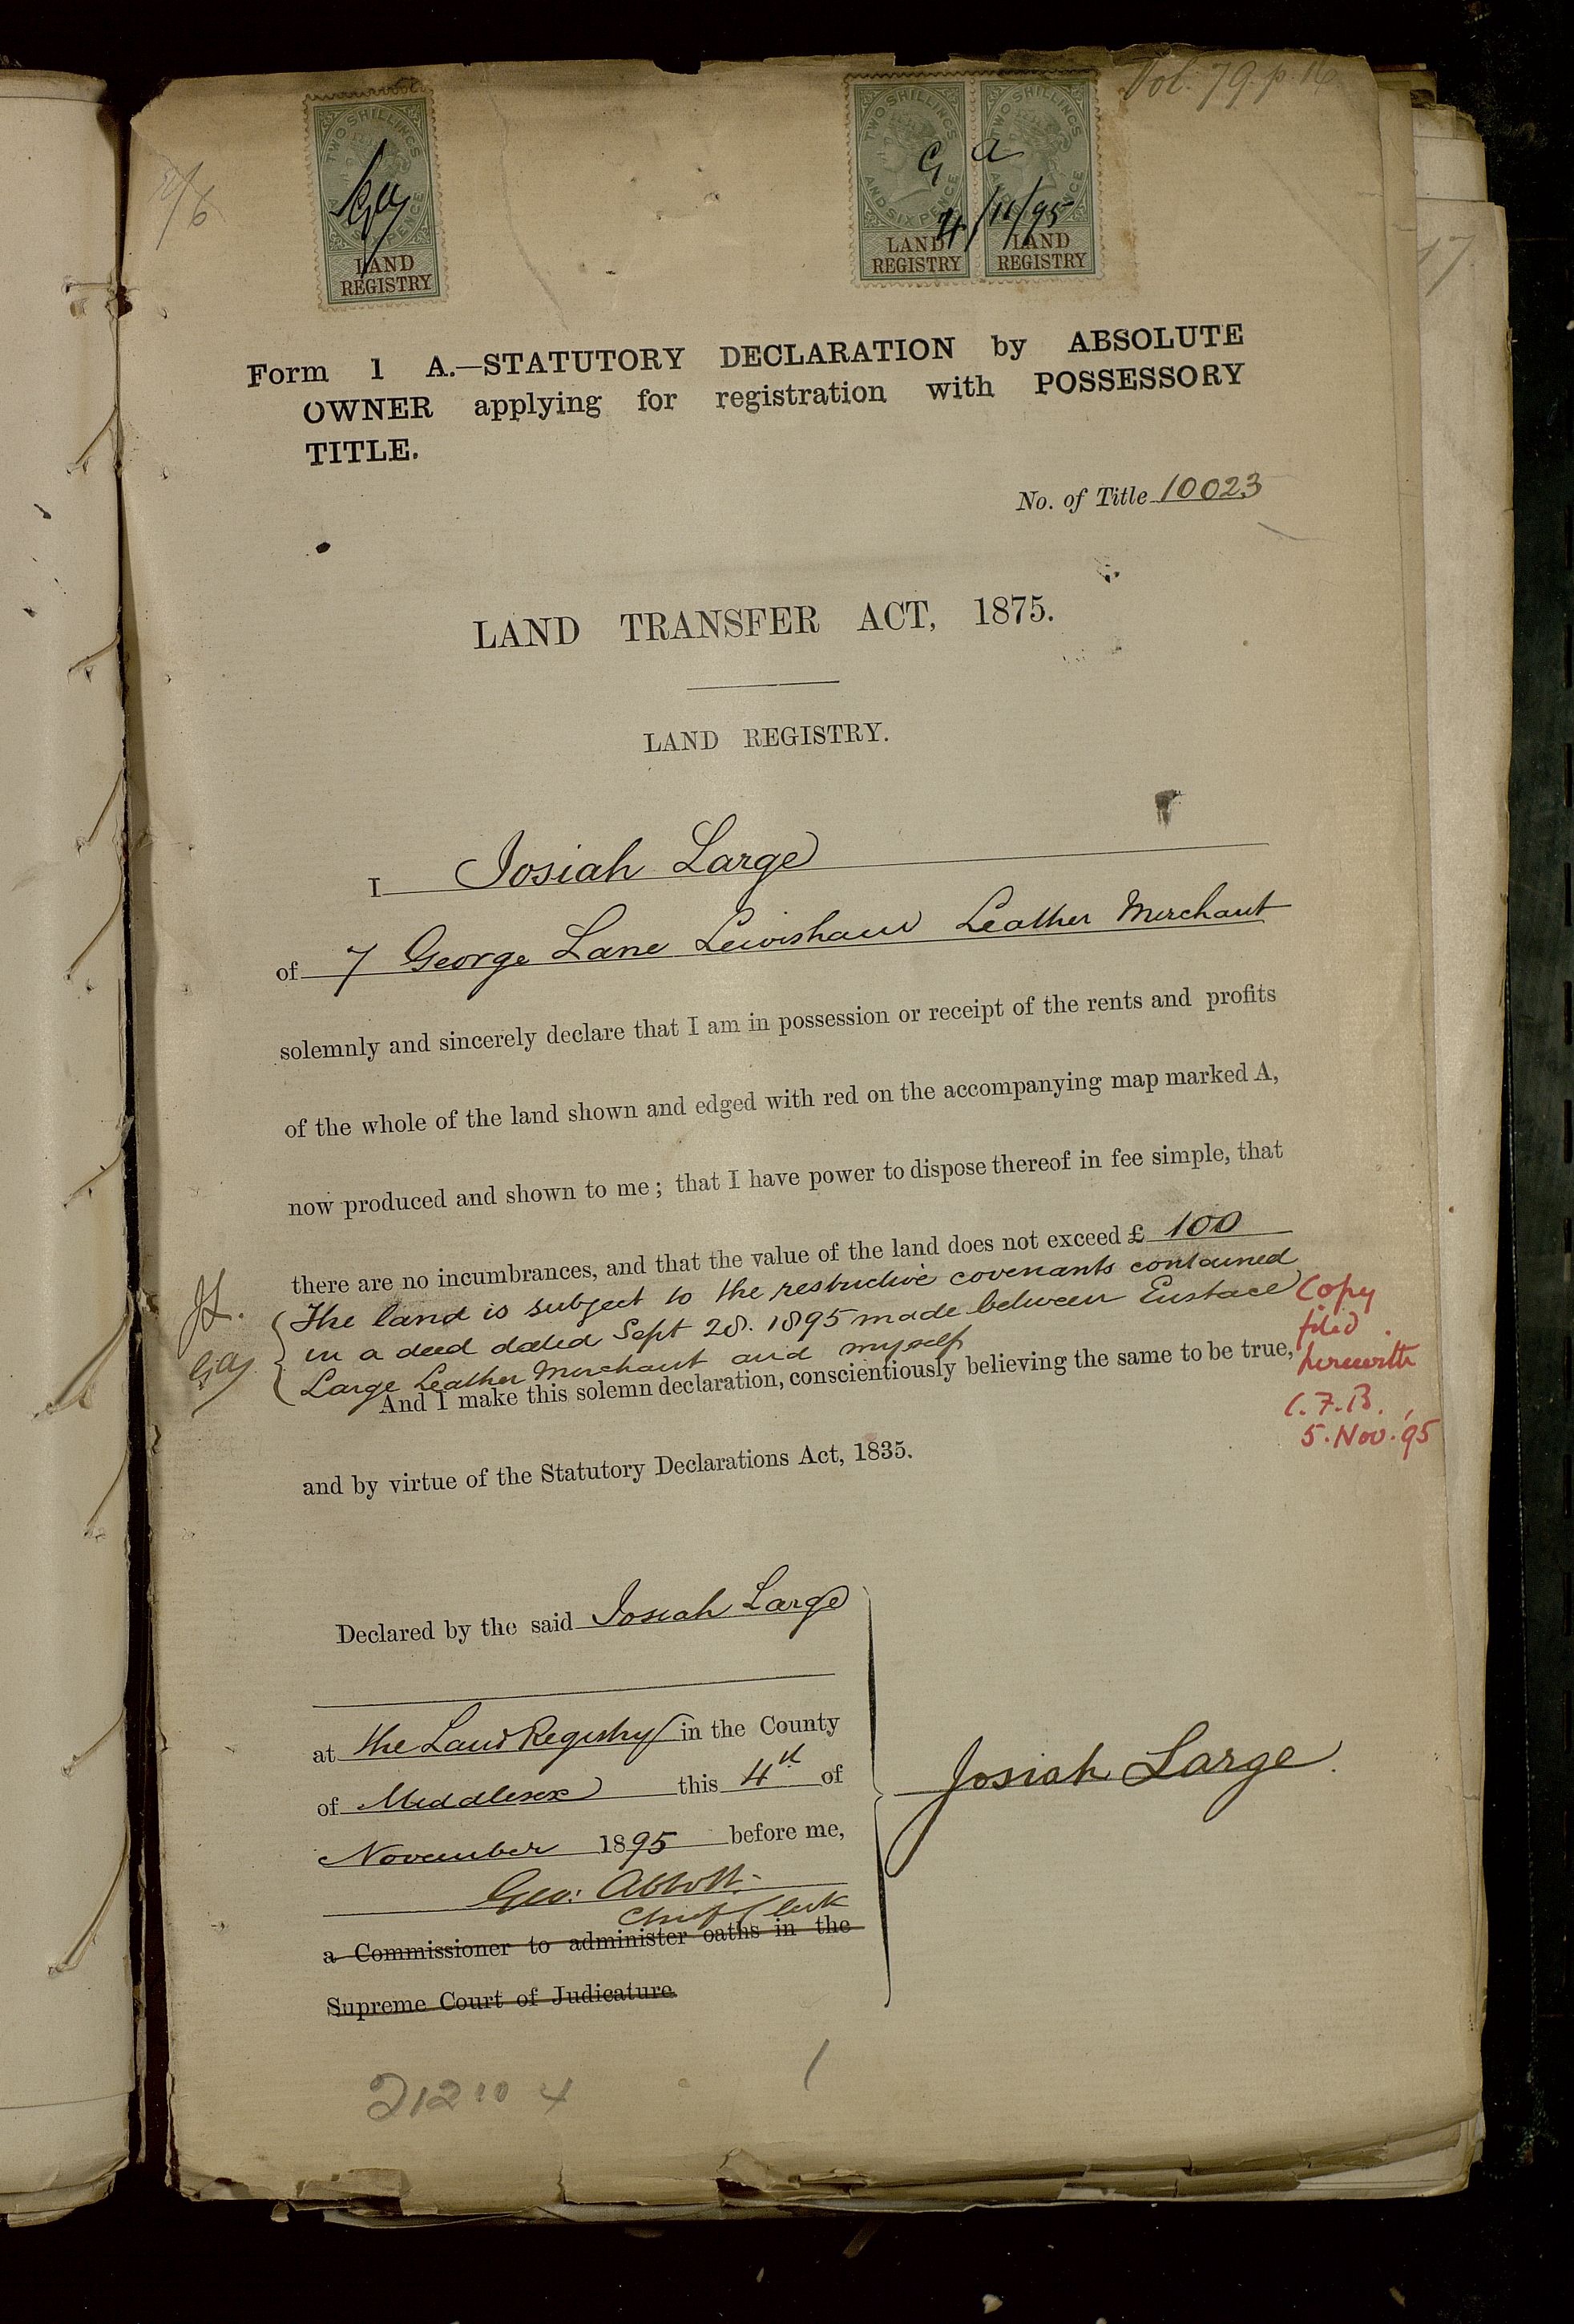 Vol. 79. p. 16
2/6
TWO SHILLINGS
AND SIX PENCE
GA
LAND
REGISTRY
TWO SHILLINGS
AND SIX PENCE
LAND
REGISTRY
TWO SHILLINGS
AND SIX PENCE
LAND
REGISTRY
G A
4/11/95
17
Form 1 A.—STATUTORY DECLARATION by ABSOLUTE
OWNER applying for registration with POSSESSORY
TITLE.
No. of Title 10023
LAND TRANSFER ACT, 1875.
LAND REGISTRY.
I Josiah Large
of 7 George Lane Lewisham Leather Merchant
solemnly and sincerely declare that I am in possession or receipt of the rents and profits
of the whole of the land shown and edged with red on the accompanying map marked A,
now produced and shown to me; that I have power to dispose thereof in fee simple, that
there are no incumbrances, and that the value of the land does not exceed £ 100
J.L.
GA
The land is subject to the restrictive covenants contained
in a deed dated Sept 28. 1895 made between Eustace
Large Leather Merchant and myself
Copy
filed
herewith
C.F.B.
5. Nov. '95
And I make this solemn declaration, conscientiously believing the same to be true,
and by virtue of the Statutory Declarations Act, 1835.
Declared by the said Josiah Large
at the Land Registry in the County
of Middlesex this 4th of
November 1895 before me,
Geo: Abbott.
Chief Clerk
a Commissioner to administer oaths in the
Supreme Court of Judicature
Josiah Large.
212 10 4